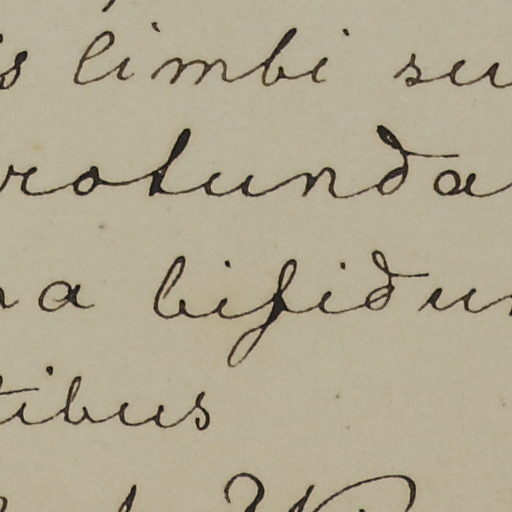 is limbi su
rotunda
na bifidu
tibus